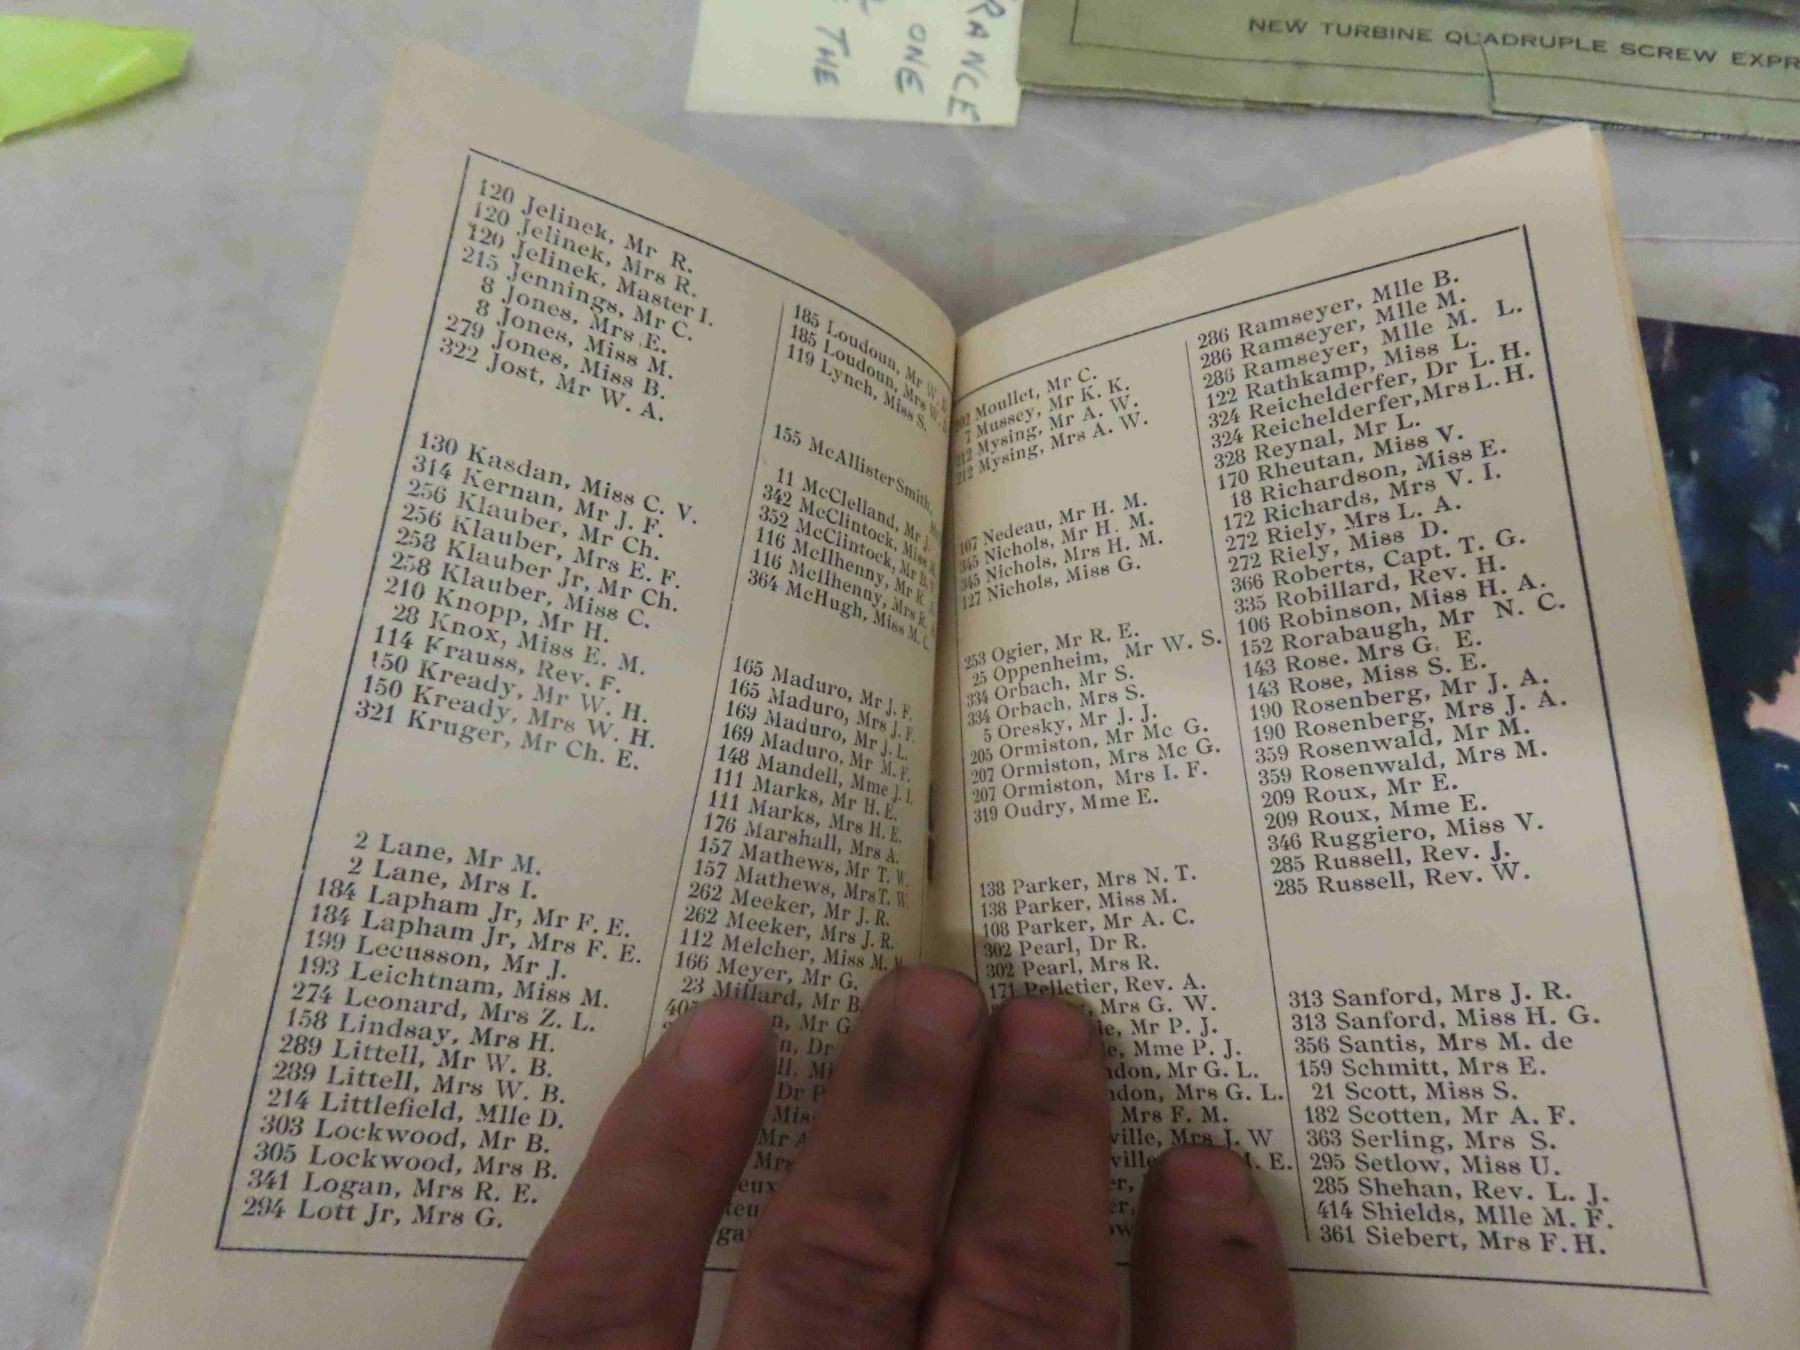 RANCE
ONE
THE
NEW TURBINE QUADRUPLE SCREW EXPR
120 Jelinek, Mr R.
120 Jelinek, Mrs R.
120 Jelinek, Master I.
215 Jennings, Mr C.
8 Jones, Mrs E.
8 Jones, Miss M.
279 Jones, Miss B.
322 Jost, Mr W. A.
130 Kasdan, Miss C. V.
314 Kernan, Mr J. F.
256 Klauber, Mr Ch.
256 Klauber, Mrs E. F.
258 Klauber Jr, Mr Ch.
258 Klauber, Miss C.
210 Knopp, Mr H.
28 Knox, Miss E. M.
114 Krauss, Rev. F.
150 Kready, Mr W. H.
150 Kready, Mrs W. H.
321 Kruger, Mr Ch. E.
2 Lane, Mr M.
2 Lane, Mrs I.
184 Lapham Jr, Mr F. E.
184 Lapham Jr, Mrs F. E.
199 Lecusson, Mr J.
193 Leichtnam, Miss M.
274 Leonard, Mrs Z. L.
158 Lindsay, Mrs H.
289 Littell, Mr W. B.
289 Littell, Mrs W. B.
214 Littlefield, Mlle D.
303 Lockwood, Mr B.
305 Lockwood, Mrs B.
341 Logan, Mrs R. E.
294 Lott Jr, Mrs G.
185 Loudoun, Mr W.
185 Loudoun, Mrs W.
119 Lynch, Miss S.
155 McAllister Smith,
11 McClelland, Mr J.
342 McClintock, Miss
352 McClintock, Mr B.
116 McIlhenny, Mr R.
116 McIlhenny, Mrs R.
364 McHugh, Miss M. C.
165 Maduro, Mr J. F.
165 Maduro, Mrs J. F.
169 Maduro, Mr J. L.
169 Maduro, Mr M. F.
148 Mandell, Mme J. I.
111 Marks, Mr H. E.
111 Marks, Mrs H. E.
176 Marshall, Mrs A.
157 Mathews, Mr T. W.
157 Mathews, Mrs T. W.
262 Meeker, Mr J. R.
262 Meeker, Mrs J. R.
112 Melcher, Miss M.
166 Meyer, Mr G.
23 Millard, Mr B.
n, Mr G
n, Dr
ll, Mi
Dr P
Miss
Mr A
Mrs
eux
teu
ga
202 Moullet, Mr C.
7 Mussey, Mr K. K.
212 Mysing, Mr A. W.
212 Mysing, Mrs A. W.
107 Nedeau, Mr H. M.
345 Nichols, Mr H. M.
345 Nichols, Mrs H. M.
127 Nichols, Miss G.
253 Ogier, Mr R. E.
25 Oppenheim, Mr W. S.
334 Orbach, Mr S.
334 Orbach, Mrs S.
5 Oresky, Mr J. J.
205 Ormiston, Mr Mc G.
207 Ormiston, Mrs Mc G.
207 Ormiston, Mrs I. F.
319 Oudry, Mme E.
138 Parker, Mrs N. T.
138 Parker, Miss M.
108 Parker, Mr A. C.
302 Pearl, Dr R.
302 Pearl, Mrs R.
171 Pelletier, Rev. A.
, Mrs G. W.
ie, Mr P. J.
e, Mme P. J.
ndon, Mr G. L.
ndon, Mrs G. L.
Mrs F. M.
ville, Mrs J. W
ville M. E.
er,
er,
ow
286 Ramseyer, Mlle B.
286 Ramseyer, Mlle M.
286 Ramseyer, Mlle M. L.
122 Rathkamp, Miss L.
324 Reichelderfer, Dr L. H.
324 Reichelderfer, Mrs L. H.
328 Reynal, Mr L.
170 Rheutan, Miss V.
18 Richardson, Miss E.
172 Richards, Mrs V. I.
272 Riely, Mrs L. A.
272 Riely, Miss D.
366 Roberts, Capt. T. G.
335 Robillard, Rev. H.
106 Robinson, Miss H. A.
152 Rorabaugh, Mr N. C.
143 Rose. Mrs G. E.
143 Rose, Miss S. E.
190 Rosenberg, Mr J. A.
190 Rosenberg, Mrs J. A.
359 Rosenwald, Mr M.
359 Rosenwald, Mrs M.
209 Roux, Mr E.
209 Roux, Mme E.
346 Ruggiero, Miss V.
285 Russell, Rev. J.
285 Russell, Rev. W.
313 Sanford, Mrs J. R.
313 Sanford, Miss H. G.
356 Santis, Mrs M. de
159 Schmitt, Mrs E.
21 Scott, Miss S.
182 Scotten, Mr A. F.
363 Serling, Mrs S.
295 Setlow, Miss U.
285 Shehan, Rev. L. J.
414 Shields, Mlle M. F.
361 Siebert, Mrs F. H.